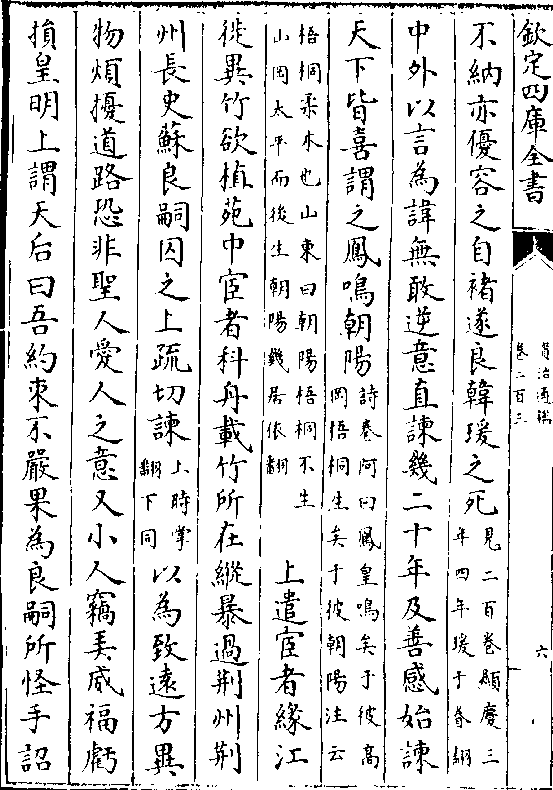 欽定四庫全書
資治通鑑
卷二百三
六
不納亦優容之自褚遂良韓瑗之死見二百卷顯慶三年四年瑗于眷翻
中外以言為諱無敢逆意直諫幾二十年及善感始諫
天下皆喜謂之鳳鳴朝陽詩卷阿曰鳳皇鳴矣于彼高岡梧桐生矣于彼朝陽注云
梧桐柔木也山東曰朝陽梧桐不生山岡太平而後生朝陽幾居依翻上遣宦者緣江
徙異竹欲植苑中宦者科舟載竹所在縱暴過荆州荆
州長史蘇良嗣囚之上疏切諫上時掌翻下同以為致遠方異
物煩擾道路恐非聖人愛人之意又小人竊弄威福虧
損皇明上謂天后曰吾約束不嚴果為良嗣所怪手詔